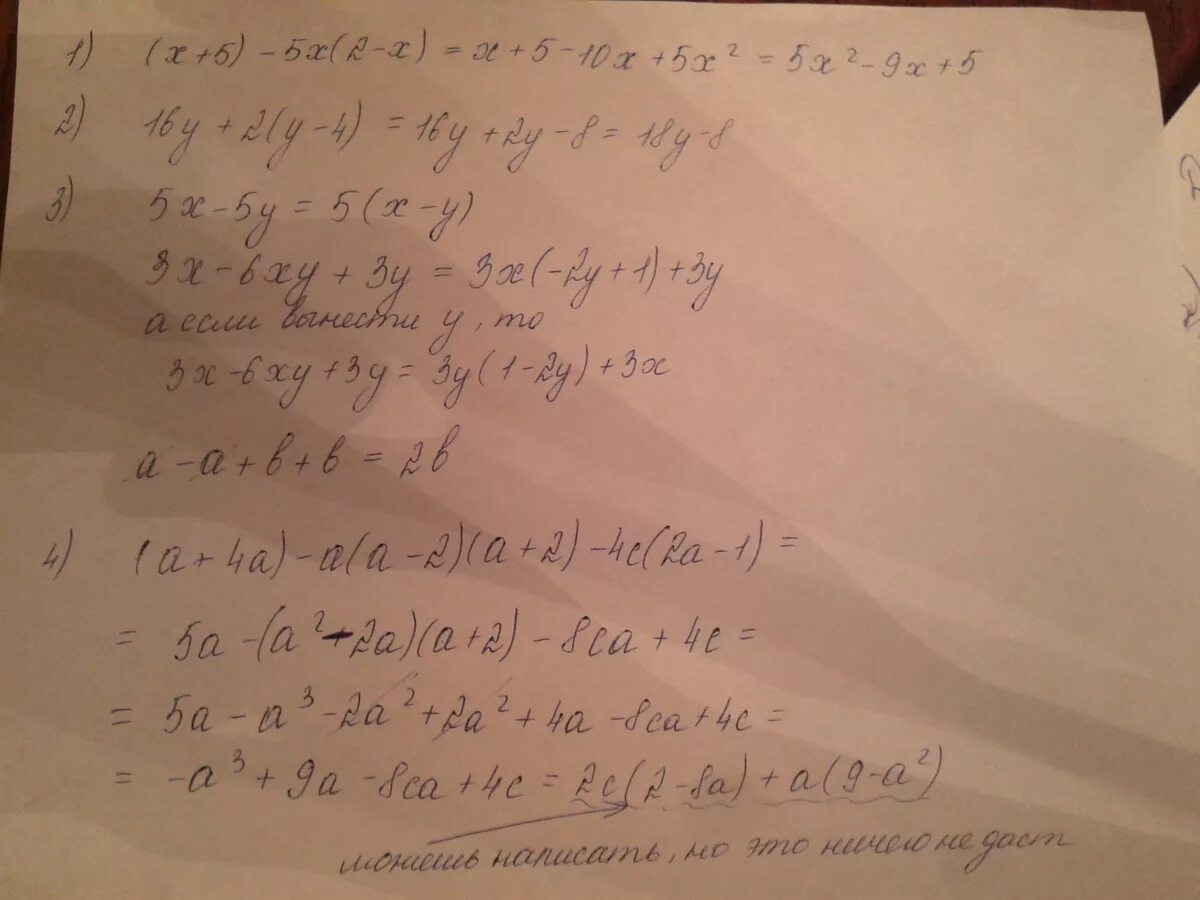 1) (x+5) - 5x(2-x) = x + 5 - 10x + 5x² = 5x² - 9x + 5
2) 16y + 2(y-4) = 16y + 2y - 8 = 18y - 8
3) 5x - 5y = 5(x-y)
3x - 6xy + 3y = 3x(-2y+1) + 3y
а если вынести y, то
3x - 6xy + 3y = 3y(1-2y) + 3x
a - a + b + b = 2b
4) (a + 4a) - a(a-2)(a+2) - 4c(2a-1) =
= 5a - (a² - 2a)(a+2) - 8ca + 4c =
= 5a - a³ - 2a² + 2a² + 4a - 8ca + 4c =
= -a³ + 9a - 8ca + 4c = 2c(2-8a) + a(9-a²)
можешь написать, но это ничего не даст